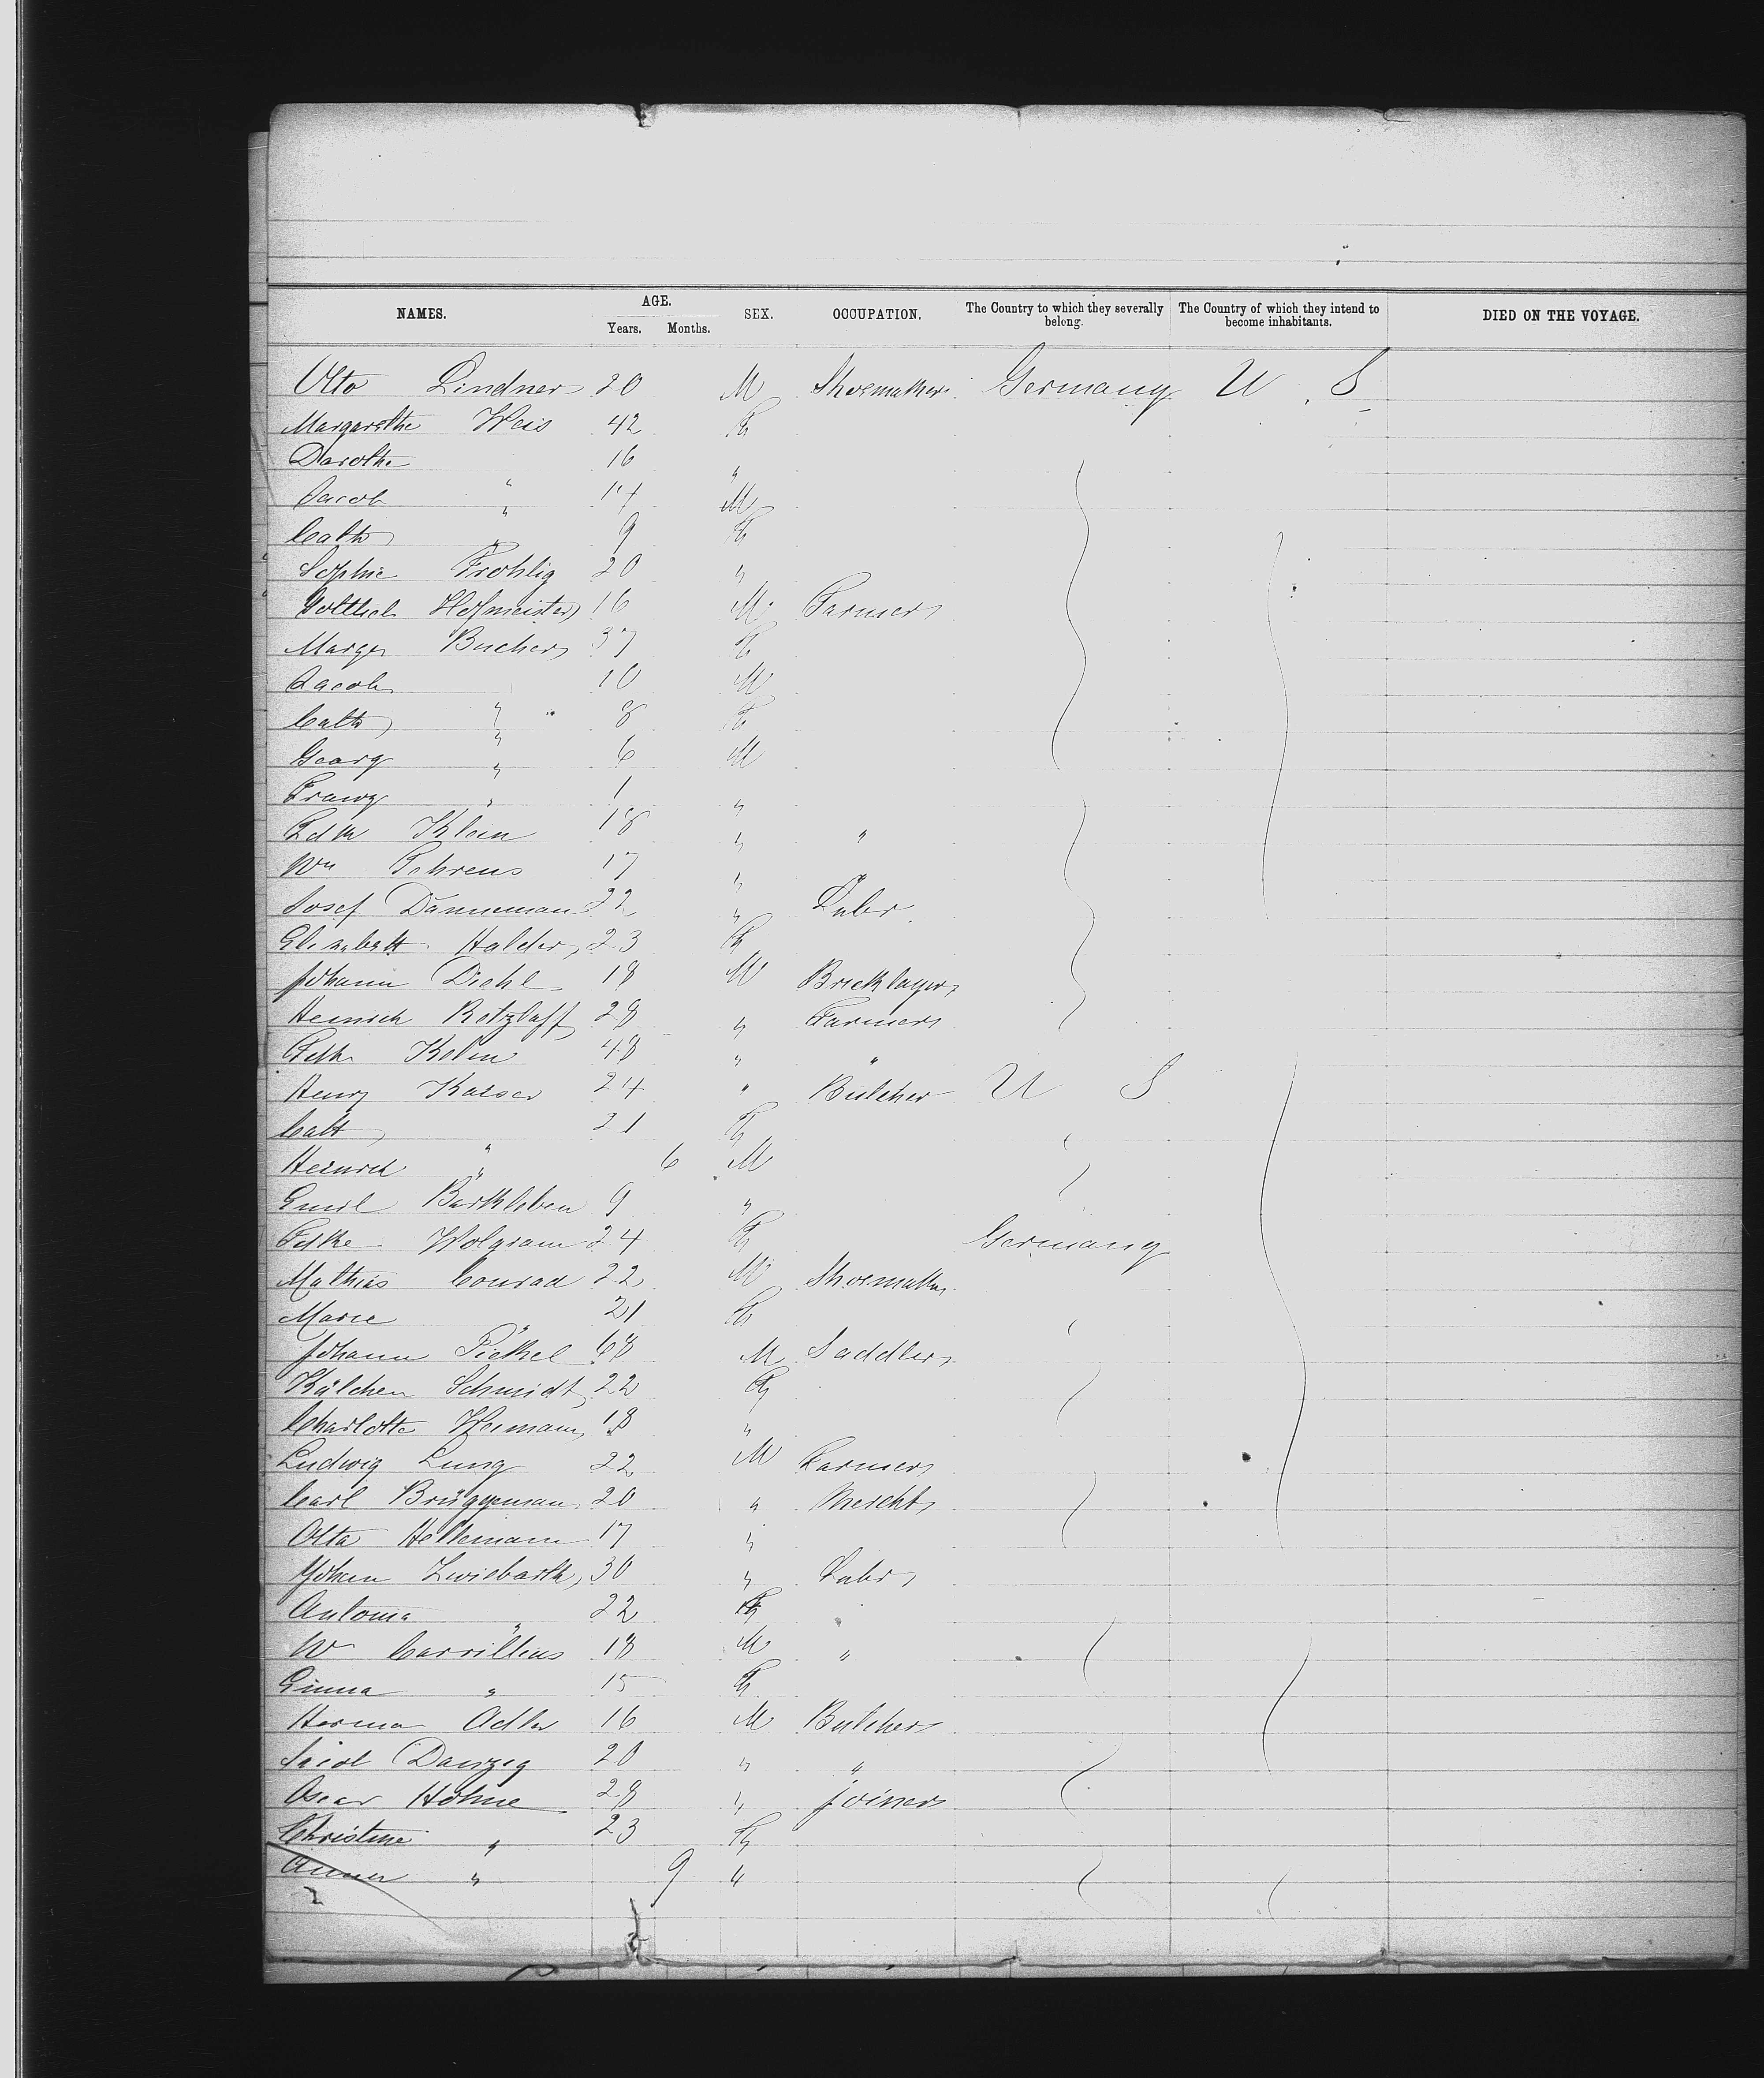 NAMES. AGE. Years. Months. SEX. OCCUPATION. The Country to which they severally belong. The Country of which they intend to become inhabitants. DIED ON THE VOYAGE.
Otto Lindner 20 M Shoemaker Germany U. S
Margarethe Weis 42 F
Dorothe " 16 "
Jacob " 14 M
Cath " 9 F
Sophie Frohlig 20 "
Gottlieb Hofmeister 16 M Farmer
Margr Bucher 37 F
Jacob " 10 M
Cath " 8 F
Georg " 6 M
Franz " 1 "
Klein 18 " "
Wm Behrens 17 "
Josef Dänneman 22 " Labr
Elizabeth Halder 23 F
Johann Diehl 18 M Bricklayer
Heinrich Retzlaff 28 " Farmer
48 " "
Henry Kaiser 24 " Butcher U S
Cath " 21 F
Heinrich " 6 M
Emil Barthleben 9 "
Wolgram 24 F Germany
Mathias Conrad 22 M Shoemaker
Marie " 21 F
Johann 68 M Saddler
Kätchen Schmidt 22 F
Charlotte Heimann 18 "
Ludwig Lung 22 M Farmer
Carl Brüggeman 20 " Mercht
Otto Hellemann 17 "
Johan Zwiebarth 30 " Labr
Antonia " 22 F "
W 18 M "
Emma " 15 F
Herman Adler 16 M Butcher
Danzig 20 " "
Oscar Hohne 28 " Joiner
Christine " 23 F
Anna " 9 "
2